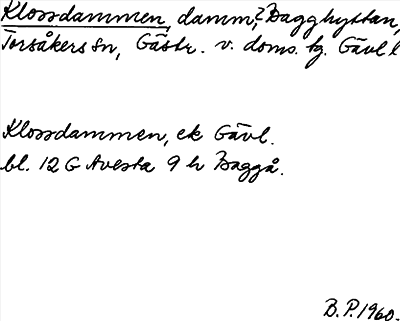 Klossdammen, damm, ? Bagghyttan,
Torsåkers sn, Gästr. v. doms. tg. Gävl. l
Klossdammen, ek Gävl.
bl. 12 G Avesta 9 h Baggå.
B.P. 1960.